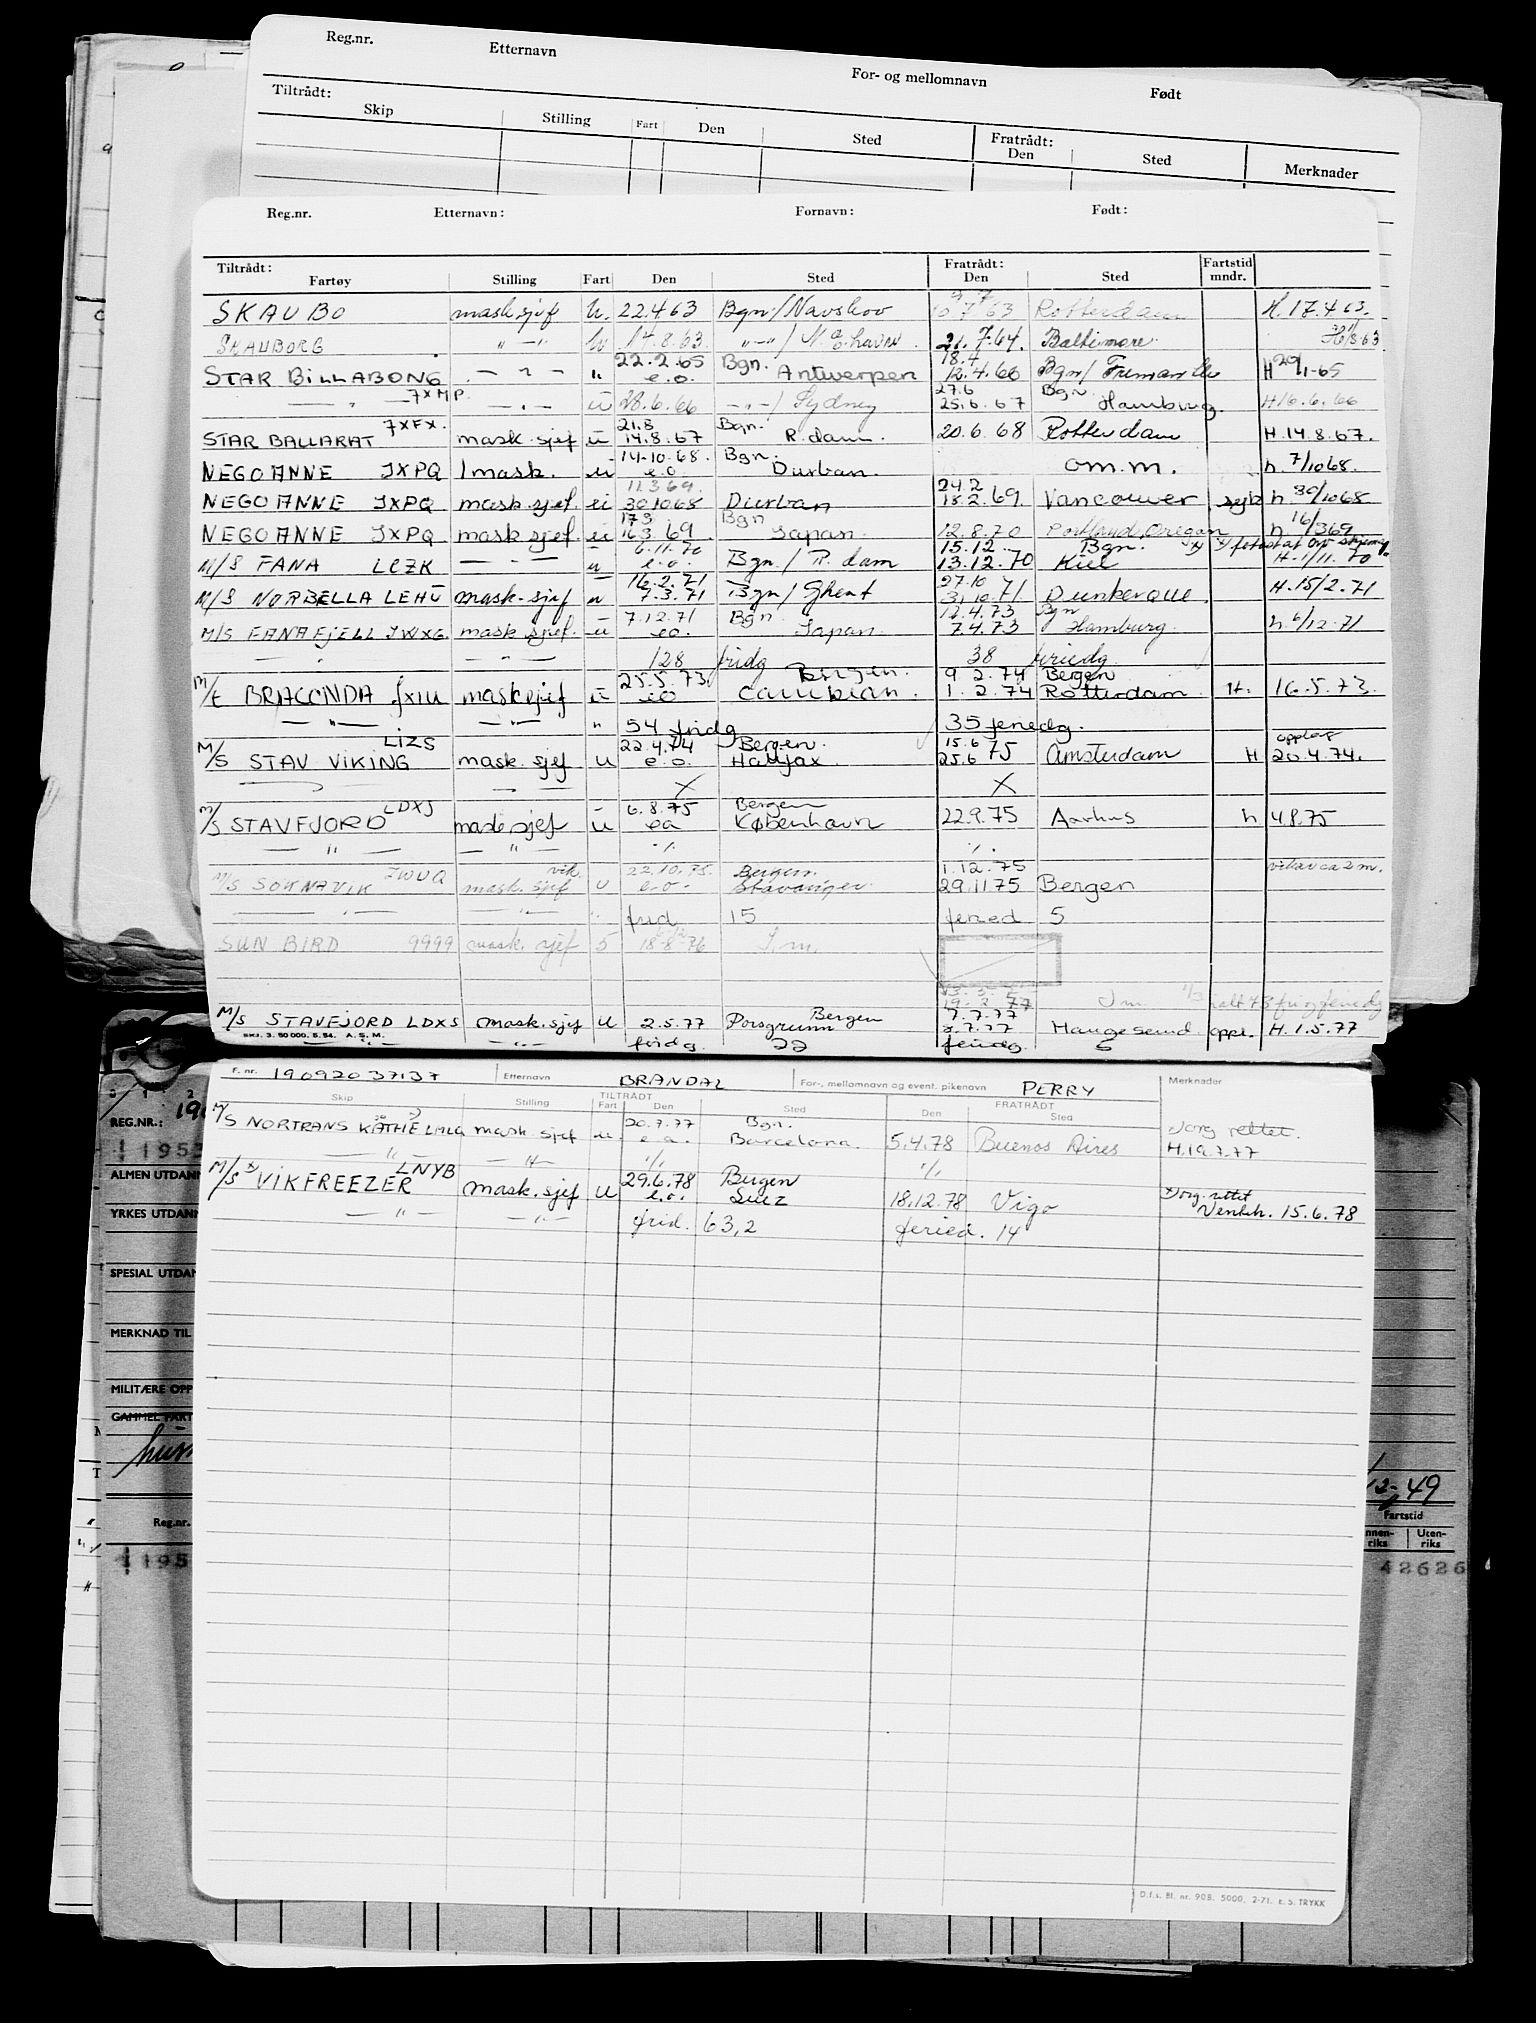 Reg.nr. Etternavn For- og mellomnavn Født
Tiltrådt: Fratrådt:
Skip Stilling Fart Den Sted Den Sted Merknader
Reg.nr. Etternavn: Fornavn: Født:
Tiltrådt: Fratrådt: Fartstid
Fartøy Stilling Fart Den Sted Den Sted mndr.
SKAUBO mask.sjef U. 22.4.63 Bgn/Navskov 7 63 Rotterdam H. 17.4.63.
SKAUBORG "—" U 14.8.63. "—"/ 21.7.64. Baltimore
22.2.65 Bgn. 18.4
STAR BILLABONG — " — " e.o. Antwerpen 12.4.66 Bgn/ Fremantle H 29/1-65
7XMP. 27.6 Bgn
— " — — " — u 28.6.66 —"—/ Sydney 25.6.67 Hamburg. H 16.6.66
7XFX. 21.8 Bgn.
STAR BALLARAT mask.sjef u 14.8.67 R.dam. 20.6.68 Rotterdam H.14.8.67.
14-10.68. Bgn.
NEGO ANNE JXPQ 1 mask. u e.o Durban. om.m. h. 7/1068.
11.3 69. 24.2
NEGO ANNE JXPQ mask.sjef. u 301068 Durban 18.2.69. Vancouver syk h. 30/1068
17.3 Bgn
NEGO ANNE JXPQ mask sjef. u 16.3.69. Japan. 12.8.70 Portland, Oregon h 16/369
6.11.70 15.12. Bgn. x) x) fotostat av
M/S FANA LEZK — " — u e.o. Bgn./ R.dam 13.12.70 Kiel H. 1/11. 70
16.2.71 27.10
M/S NORBELLA LEHU mask.sjef u 7.3.71 Bgn/ Ghent 3.10.71 Dunkerque. H.15/2.71
7.12.71 Bgn 12.4.73 Bgn
M/S FANAFJELL JWXG. mask sjef. u eo. Japan. 7.4.73 Hamburg. h. 6/12.71
— " — — " — 128 fridg 38 feriedg.
25.5.73. Bergen. 9 2.74 Bergen
M/T BRACONDA JXIU mask sjef u eo Caribian. 1.2.74 Rotterdam H. 16.5.73.
— " — — " — " 54 fridg 35 feriedg.
LIZS 22.4.74 Bergen. 15.6
M/S STAV VIKING mask.sjef u e.o. Halifax. 25.6 75 Amsterdam H 20.4.74.
X X
LDXS 6.8.75 Bergen
M/S STAVFJORD mask sjef u ea København 22.9.75 Aarhus h 4.8.75
— " — — " — ·/. ·/.
JWUQ vik. 22.10.75. Bergen. 1.12.75 vikar ca 2 m.
M/S SOKNAVIK mask. sjef u e.o. Stavanger. 29.11 75 Bergen
— " — — " — " frid 15 feried 5
SUN BIRD 9999 mask. sjef 5 18-8-76 I.m.
19.2.77 I m
Bergen 7.7.77
M/S STAVFJORD LDXS mask.sjef u 2.5.77 Porsgrunn 3.7.77 Haugesund oppl. H. 1.5.77
SKJ. 3. 50 000. 5. 54. A. S. M. — " — fridg. 22 feriedg. 6
F. nr. 190920 37137 Etternavn BRANDAL For-, mellomnavn og event. pikenavn PERRY Merknader
TILTRÅDT FRATRÅDT
Skip Stilling Fart Den Sted Den Sted
20.7.77 Bgn.
M/S NORTRANS KATHE LMLG mask.sjef u. e.a. Barcelona. 5.4.78 Buenos Aires Jorg rettet.
— " — — " — ·/. ·/. H.19.7.77
LNYB 29.6.78 Bergen
M/S x) VIKFREEZER mask.sjef u e.o. Suez 18.12.78 Vigo x) Jorg. rettet
— " — — " — frid. 63,2 feried. 14 Venteh. 15.6.78
REG.NR.: 190
11953
ALMEN UTDANN
YRKES UTDANN
SPESIAL UTDAN
MERKNAD TIL
MILITÆRE OPP
GAMMEL FART
12-49
Reg.nr. Fartstid
nnen-riks Uten-riks
1195 42626
D.f.s. Bl. nr. 908. 5000. 2-71. E. S. TRYKK